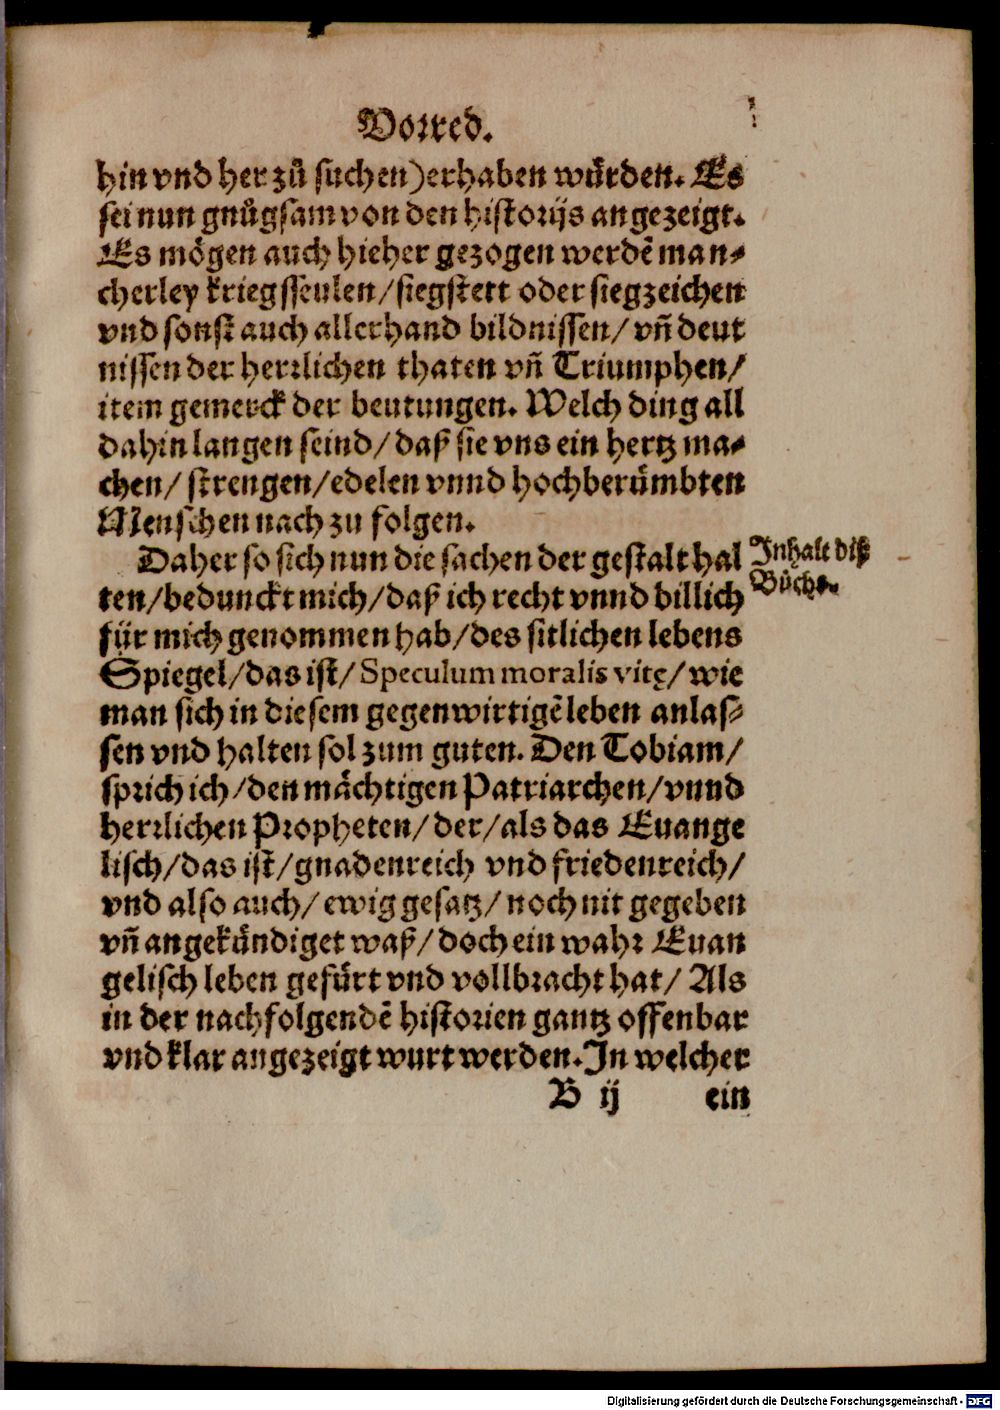 Vorred.
hin vnd her zů suchen) erhaben wůrden. Es
sei nun gnůgsam von den historijs angezeigt.
Es mögen auch hieher gezogen werdẽ man⸗
cherley kriegsseulen/ siegstett oder siegzeichen
vnd sonst auch allerhand bildnissen/ vñ deut
nissen der herrlichen thaten vñ Triumphen/
item gemerck der beutungen. Welch ding all
dahin langen seind/ daß sie vns ein hertz ma⸗
chen/ strengen/ edelen vnnd hochberümbten
Menschen nach zu folgen.
Daher so sich nun die sachen der gestalt hal
ten/ bedunckt mich/ daß ich recht vnnd billich
für mich genommen hab/ des sitlichen lebens
Spiegel/ das ist/ Speculum moralis vitę/ wie
man sich in diesem gegenwirtigẽ leben anlas⸗
sen vnd halten sol zum guten. Den Tobiam/
sprich ich/ den mächtigen Patriarchen/ vnnd
herrlichen Propheten/ der/ als das Euange
lisch/ das ist/ gnadenreich vnd friedenreich/
vnd also auch/ ewig gesatz/ noch nit gegeben
vñ angekündiget waß/ doch ein wahr Euan
gelisch leben gefürt vnd vollbracht hat/ Als
in der nachfolgendẽ historien gantz offenbar
vnd klar angezeigt wurt werden. In welcher
B ij ein
Inhalt diß
Büchs.
Digitalisierung gefördert durch die Deutsche Forschungsgemeinschaft - DFG